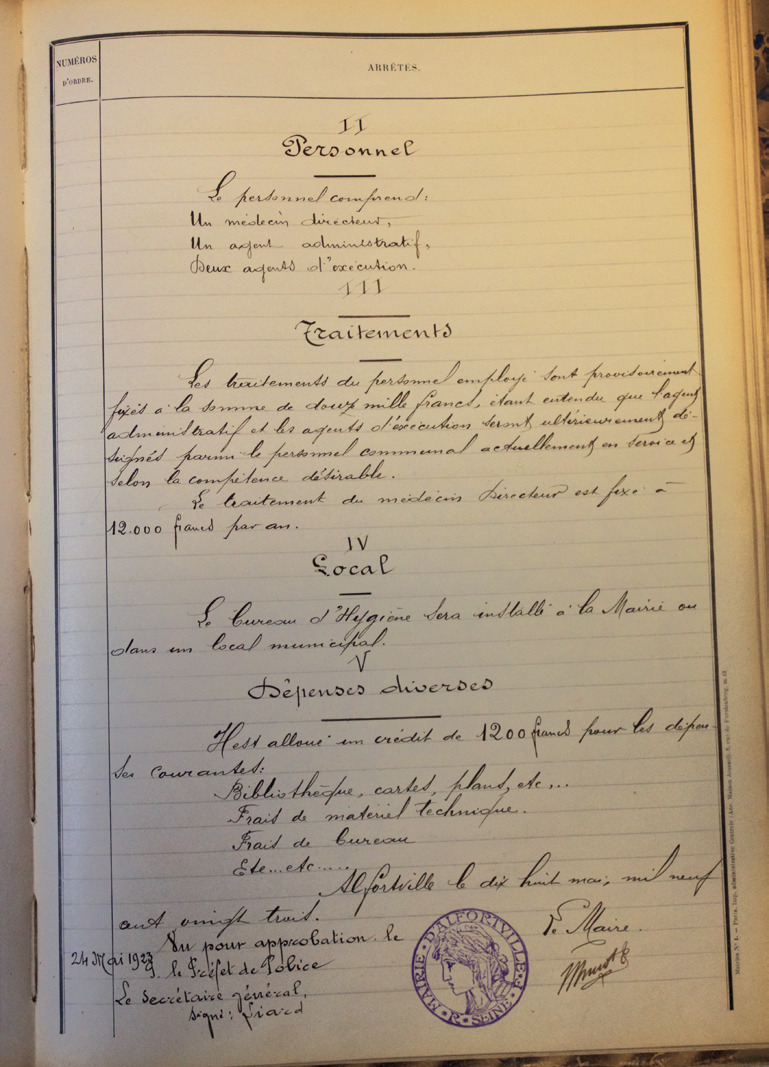 NUMÉROS
D'ORDRE.
ARRÊTÉS.
II
Personnel
Le personnel comprend:
Un médecin directeur,
Un agent administratif,
Deux agents d'exécution.
III
Traitements
Les traitements du personnel employé sont provisoirement
fixés à la somme de douze mille francs, étant entendu que l'agent
administratif et les agents d'exécution seront ultérieurement dé-
signés parmi le personnel communal actuellement en service et
selon la compétence désirable.
Le traitement du médecin Directeur est fixé à
12.000 francs par an.
IV
Local
Le bureau d'Hygiène sera installé à la Mairie ou
dans un local municipal.
V
Dépenses diverses
Il est alloué un crédit de 1200 francs pour les dépen-
ses courantes:
Bibliothèque, cartes, plans, etc...
Frais de matériel technique.
Frais de bureau
Etc...etc.....
Alfortville le dix huit mai, mil neuf
cent vingt trois.
Le Maire.
Vu pour approbation. le
24 Mai 1923
P. le Préfet de Police
Le Secrétaire général,
Signé: Liard
MAIRIE D'ALFORTVILLE
SEINE